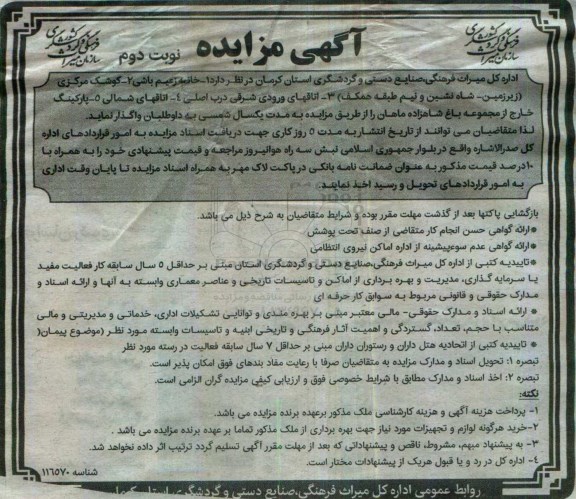 آگهی مزایده
نوبت دوم
اداره کل میراث فرهنگی،صنایع دستی و گردشگری استان کرمان در نظر دارد:۱-خانه زعیم باشی۲-کوشک مرکزی
(زیرزمین- شاه نشین و نیم طبقه همکف) ۳- اتاقهای ورودی شرقی درب اصلی ٤- اتاقهای شمالی ٥-پارکینگ
خارج از مجموعه باغ شاهزاده ماهان را از طریق مزایده به مدت یکسال شمسی به داوطلبان واگذار نماید.
لذا متقاضیان می توانند از تاریخ انتشار به مدت ٥ روز کاری جهت دریافت اسناد مزایده به امور قراردادهای اداره
کل صدرالاشاره واقع در بلوار جمهوری اسلامی نبش سه راه هوانیروز مراجعه و قیمت پیشنهادی خود را به همراه با
۱۰درصد قیمت مذکور به عنوان ضمانت نامه بانکی در پاکت لاک مهر به همراه اسناد مزایده تا پایان وقت اداری
به امور قراردادهای تحویل و رسید اخذ نمایند
بازگشایی پاکتها بعد از گذشت مهلت مقرر بوده و شرایط متقاضیان به شرح ذیل می باشد.
*ارائه گواهی حسن انجام کار متقاضی از صنف تحت پوشش
*ارائه گواهی عدم سوءپیشینه از اداره اماکن نیروی انتظامی
*تاییدیه کتبی از اداره کل میراث فرهنگی،صنایع دستی و گردشگری استان مبنی بر حداقل ٥ سال سابقه کار فعالیت مفید
یا سرمایه گذاری، مدیریت و بهره برداری از اماکن و تاسیسات تاریخی و عناصر معماری وابسته به آنها و ارائه اسناد و
مدارک حقوقی و قانونی مربوط به سوابق کار حرفه ای
* ارائه اسناد و مدارک حقوقی- مالی معتبر مبنی بر بهره مندی و توانایی تشکیلات اداری، خدماتی و مدیریتی و مالی
متناسب با حجم، تعداد، گستردگی و اهمیت آثار فرهنگی و تاریخی ابنیه و تاسیسات وابسته مورد نظر (موضوع پیمان(
* تاییدیه کتبی از اتحادیه هتل داران و رستوران داران مبنی بر حداقل ۷ سال سابقه فعالیت در رسته مورد نظر
تبصره ۱: تحویل اسناد و مدارک مزایده به متقاضیان صرفا با رعایت مفاد بندهای فوق امکان پذیر است.
تبصره ۲: اخذ اسناد و مدارک مطابق با شرایط خصوصی فوق و ارزیابی کیفی مزایده گران الزامی است.
نکته:
۱- پرداخت هزینه آگهی و هزینه کارشناسی ملک مذکور برعهده برنده مزایده می باشد.
۲-خرید هرگونه لوازم و تجهیزات مورد نیاز جهت بهره برداری از ملک مذکور تماما بر عهده برنده مزایده می باشد .
۳- به پیشنهاد مبهم، مشروط، ناقص و پیشنهاداتی که بعد از مهلت مقرر آگهی تسلیم گردد ترتیب اثر داده نخواهد شد.
٤- اداره کل در رد و یا قبول هریک از پیشنهادات مختار است.
شناسه ۱۱٦٥۷۰
روابط عمومی اداره کل میراث فرهنگی،صنایع دستی و گردشگری استان کرمان